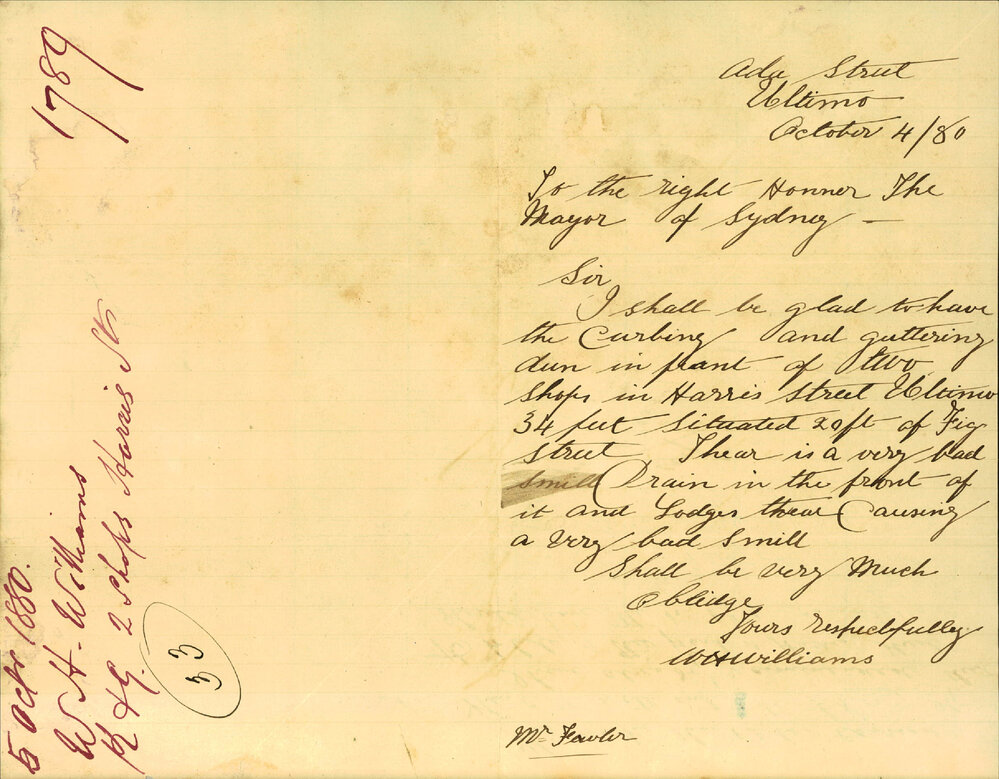 1789
5 Octr 1880.
W. H. Williams
K & G. 2 Shops Harris St
33
Ada Street
Ultimo
October 4/80
To the right Honner The
Mayor of Sydney —
Sir
I shall be glad to have
the Curbing and guttering
dun in frant of two
Shops in Harris Street Ultimo
34 feet Situated 20ft of Fig
Street Thear is a very bad
Smill Drain in the front of
it and Lodges thear Causing
a very bad Smill
Shall be very Much
Obledge
Yours respectfulley
WHWilliams
Mr Fowler